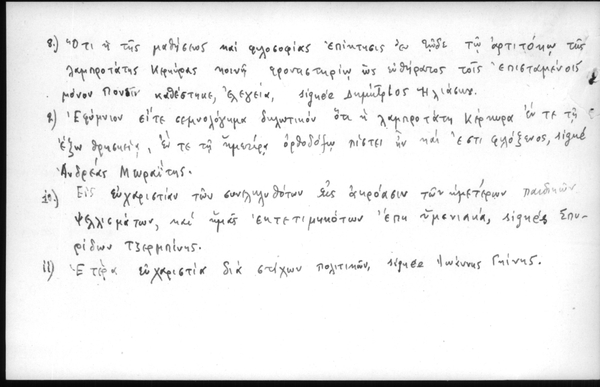 8.) Ὅτι ἡ τῆς μαθήσεως καὶ φιλοσοφίας ἐπίκτησις ἐν τῷδε τῷ ἀρτιτόκῳ τῆς
λαμπροτάτης Κερκύρας κοινῇ φροντιστηρίῳ ὡς εὐθήρατος τοῖς ἐπισταμένοις
μόνον πονεῖν καθέστηκε, ἐλεγεία, εἴρηκε Δημήτριος Ηλιάσκου.
9.) Ἐφύμνιον εἴτε σεμνολόγημα δηλωτικὸν ὅτι ἡ λαμπροτάτη Κέρκυρα ἔν τε τῇ
ἔξω θρησκείᾳ, ἔν τε τῇ ἡμετέρᾳ ὀρθοδόξῳ πίστει ἦν καὶ ἔστι φιλόξενος, εἴρηκε
Ἀνδρέας Μωραΐτης.
10.) Εἰς εὐχαριστίαν τῶν συνεληλυθότων εἰς ἀκρόασιν τῶν ἡμετέρων παιδικῶν
ψελλισμάτων, καὶ ἡμᾶς ἐκτετιμηκότων ἔπη ὑμενιακά, εἴρηκε Σπυ-
ρίδων Τζερμπίνης.
11) Ἑτέρα εὐχαριστία διὰ στίχων πολιτικῶν, εἴρηκε Ἰωάννης Γκίνης.